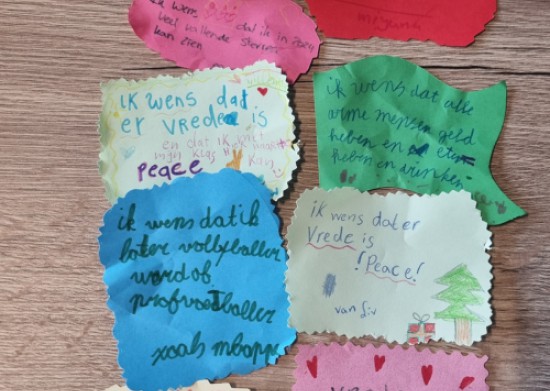 ik wens dat ik in 2024
veel vallende sterren
kan zien
ik wens dat
er vrede is
en dat ik met
mijn klas
kan
Peace
ik wens dat alle
arme mensen geld
heben en eten
heben en drinken
ik wens dat ik
later vollyballer
word of
profvoetballer
zoals mbappe
ik wens dat er
Vrede is
!Peace!
van Liv